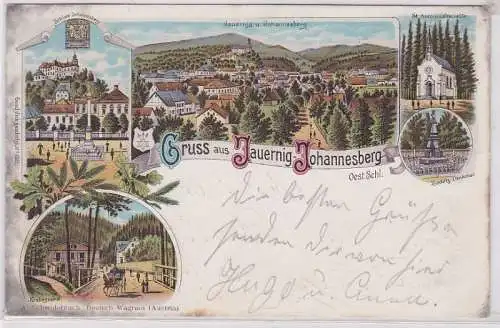 Schloss Johannesberg
Jauernigg u. Johannesberg
St. Antoniuskapelle
Gruss aus Jauernig-Johannesberg
Oest. Schl.
Denkmal
Krebsgrund
Schneiderbach, Deutsch Wagram (Austria)
Die besten Grüße
senden Dir von hier
Hugo u. Anna.